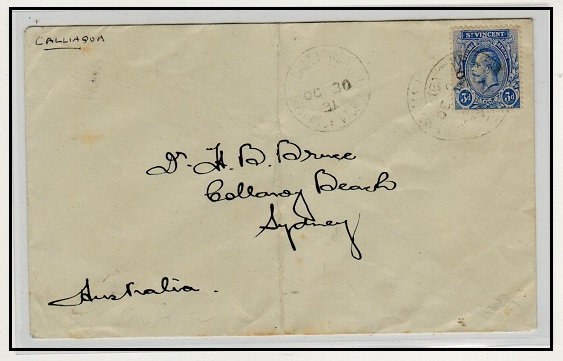 CALLIAQUA
ST VINCENT
3d 3d
OC 30
31
Dr. H. B. Bruce
Collaroy Beach
Sydney
Australia.